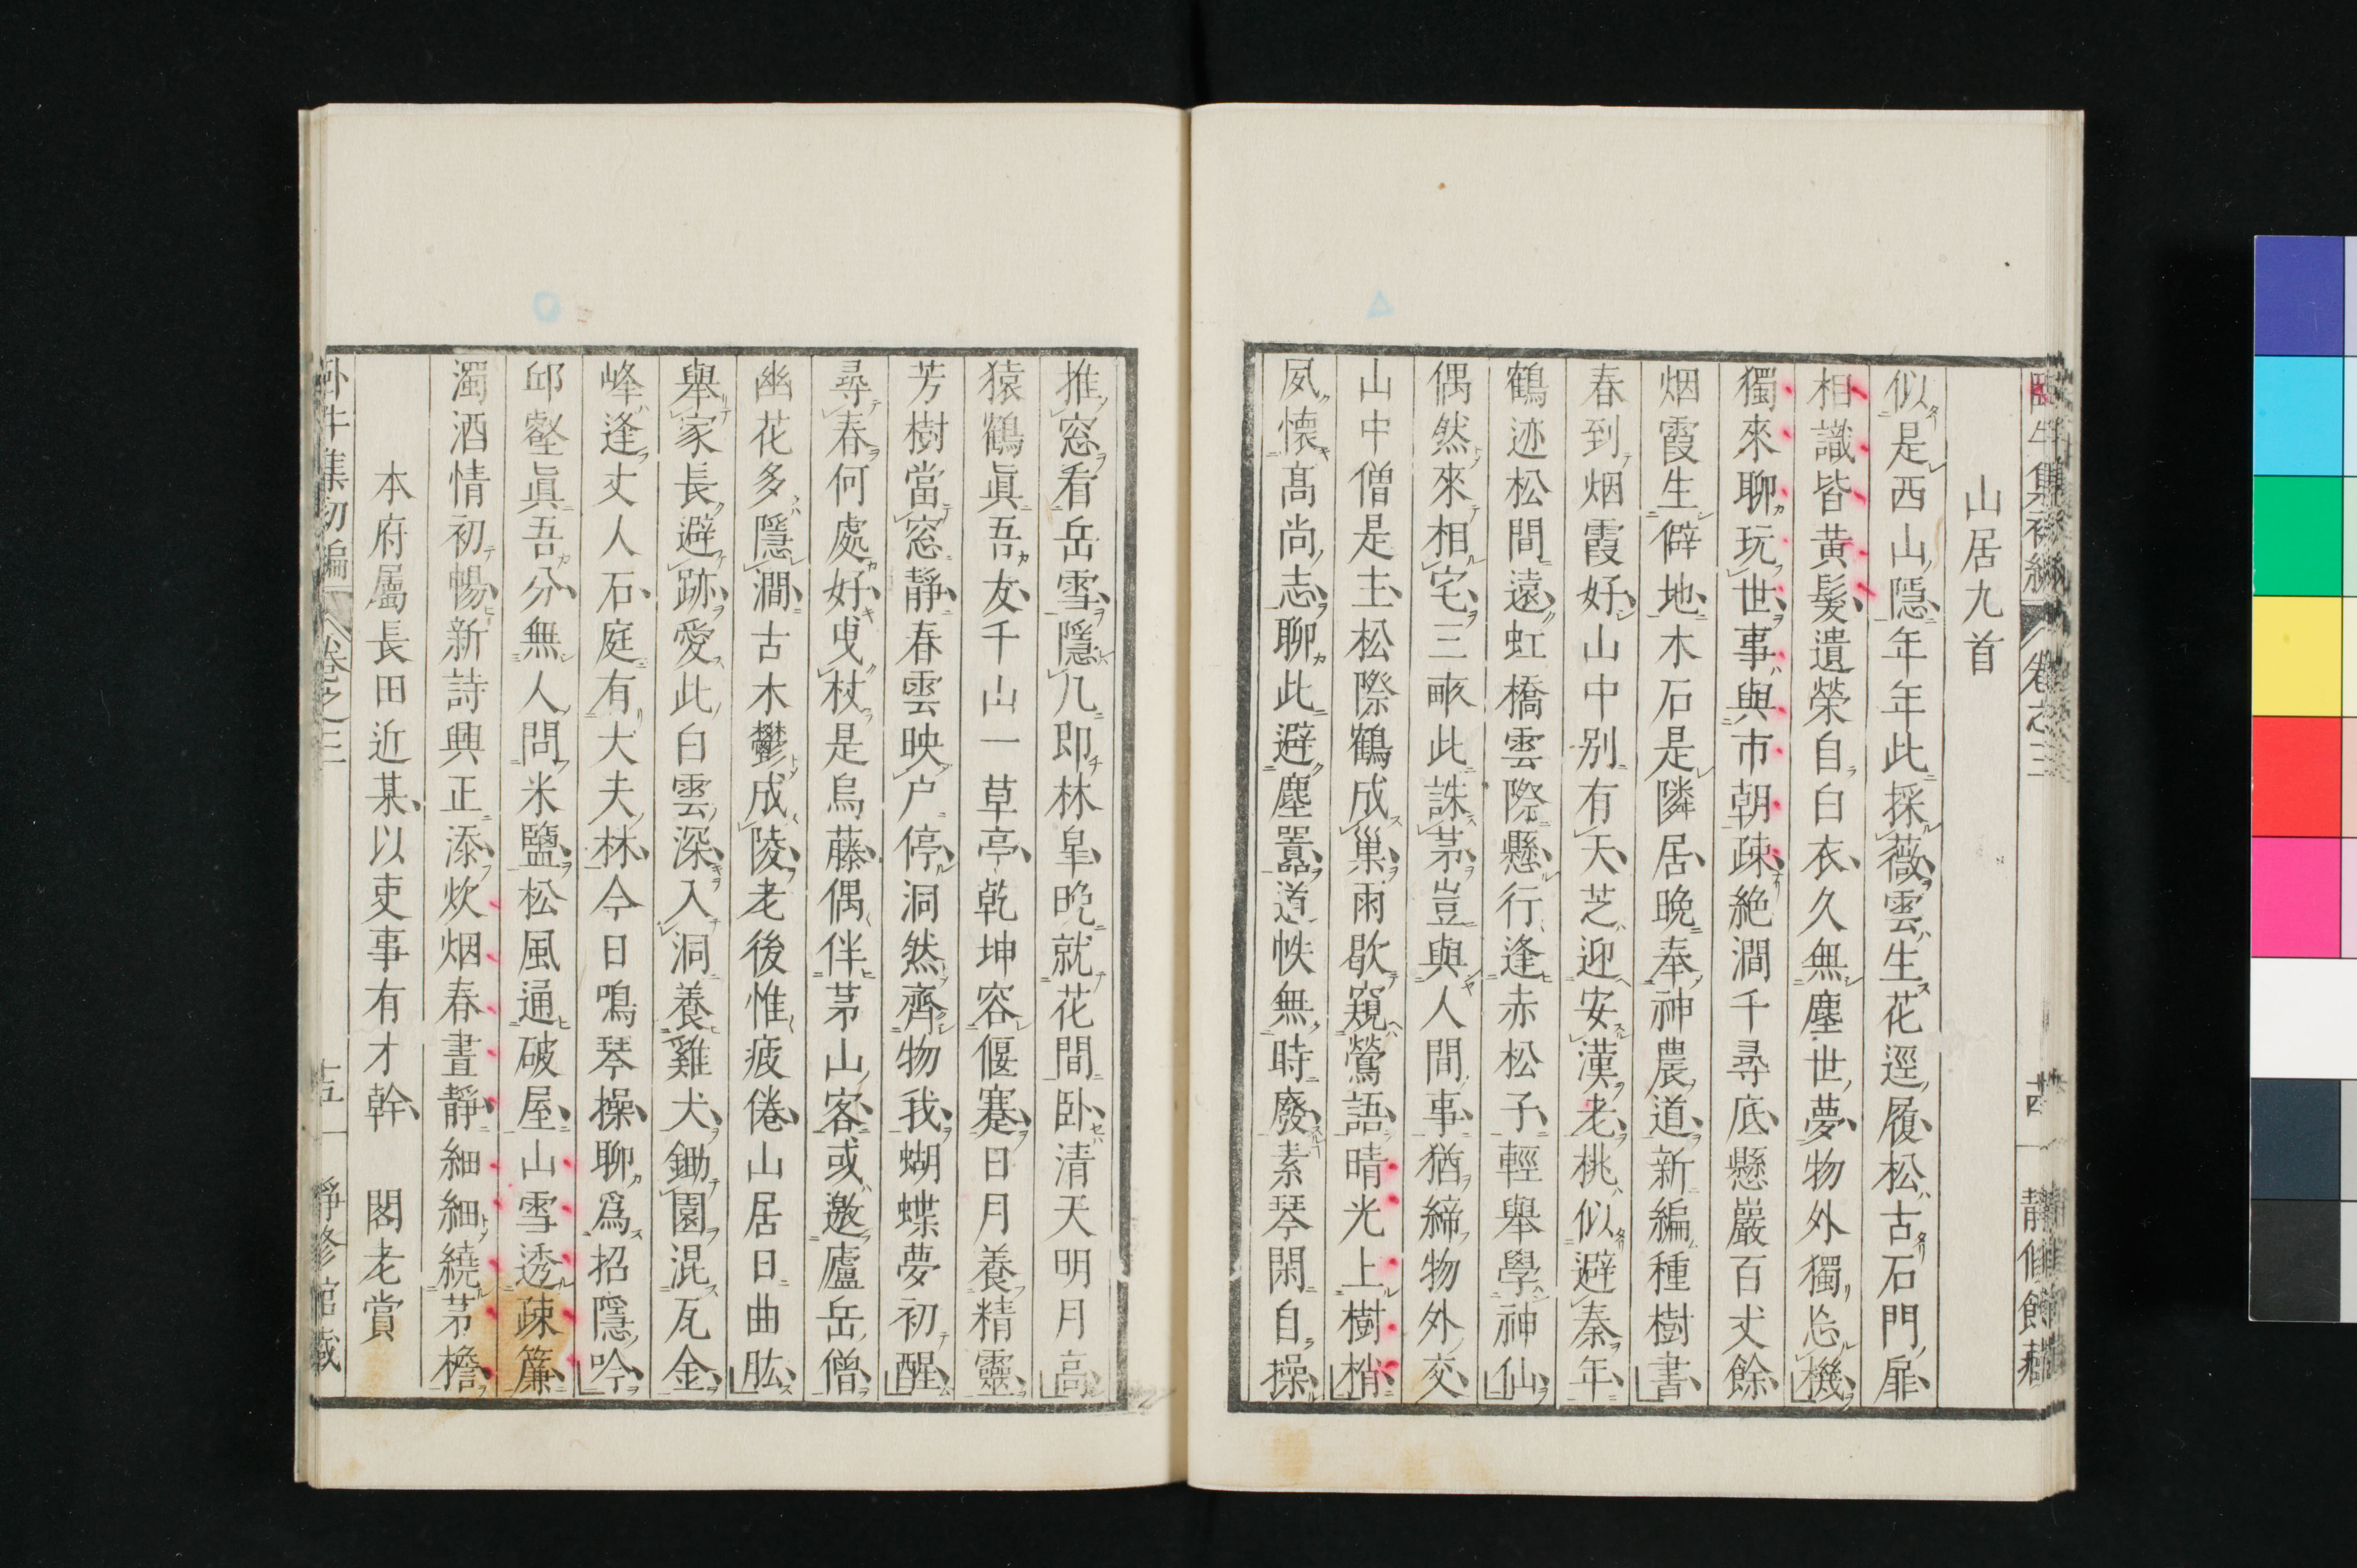 臥牛集初編　卷之三　十四　靜脩館藏
山居九首
似是西山隱年年此採薇雲生花逕履松古石門扉
相識皆黃髮遺榮自白衣久無塵世夢物外獨忘機
獨來聊玩世事與市朝疎絶澗千尋底懸巖百丈餘
烟霞生僻地木石是隣居晩奉神農道新編種樹書
春到烟霞好山中別有天芝迎安漢老桃似避秦年
鶴迹松間遠虹橋雲際懸行逢赤松子輕舉學神仙
偶然來相宅三畝此誅茅豈與人間事猶締物外交
山中僧是主松際鶴成巢雨歇窺鶯語晴光上樹梢
夙懷髙尚志聊此避塵囂道帙無時廢素琴閑自操
推窓看岳雪隱几即林皐晩就花間卧清天明月高
猿鶴眞吾友千山一草亭乾坤容偃蹇日月養精靈
芳樹當窓靜春雲映户停洞然齊物我蝴蝶夢初醒
尋春何處好曳杖是烏藤偶伴茅山客或邀廬岳僧
幽花多隱澗古木鬱成陵老後惟疲倦山居日曲肱
舉家長避跡愛此白雲深入洞養雞犬鋤園混瓦金
峰逢丈人石庭有大夫林今日鳴琴操聊爲招隱吟
邱壑眞吾分無人問米鹽松風通破屋山雪透疎簾
濁酒情初暢新詩興正添炊烟春晝靜細細繞茅檐
本府屬長田近某以吏事有才幹　閣老賞
臥牛集初編　卷之三　十五　靜脩館藏